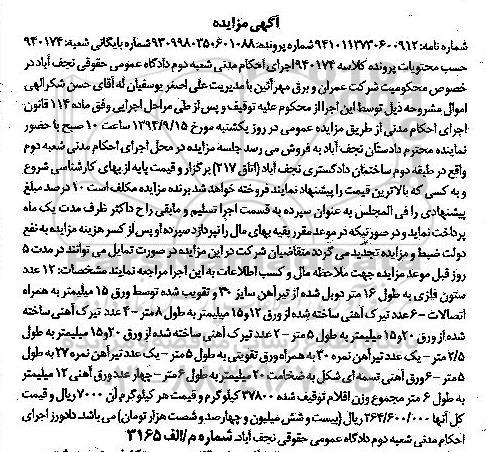 آگهی مزایده
شماره نامه: ۹۴۱۰۱۱۲۷۳۰۶۰۰۹۱۲ شماره پرونده: ۹۳۰۹۹۸۰۳۵۰۶۰۱۰۸۸ شماره بایگانی شعبه: ۹۴۰۱۷۴
حسب محتویات پرونده کلاسه ۹۴۰۱۷۴ اجرای احکام مدنی شعبه دوم دادگاه عمومی حقوقی نجف آباد در
خصوص محکومیت شرکت عمران و برق مهرآئین با مدیریت علی اصغر یوسفیان له آقای حسن شکرالهی
اموال مشروحه ذیل توسط این اجرا از محکوم علیه توقیف و پس از طی مراحل اجرایی وفق ماده ۱۱۴ قانون
اجرای احکام مدنی از طریق مزایده عمومی در روز یکشنبه مورخ ۱۳۹۴/۹/۱۵ ساعت ۱۰ صبح با حضور
نماینده محترم دادستان نجف آباد به فروش می رسد جلسه مزایده در محل اجرای احکام مدنی شعبه دوم
واقع در طبقه دوم ساختمان دادگستری نجف آباد (اتاق ۲۱۷) برگزار و قیمت پایه از بهای کارشناسی شروع
و به کسی که بالاترین قیمت را پیشنهاد نمایند فروخته خواهد شد برنده مزایده مکلف است ۱۰ درصد مبلغ
پیشنهادی را فی المجلس به عنوان سپرده به قسمت اجرا تسلیم و مابقی را ح داکثر ظرف مدت یک ماه
پرداخت نماید و در صورتیکه در موعد مقرر بقیه بهای مال را نپردازد سپرده او پس از کسر هزینه مزایده به نفع
دولت ضبط و مزایده تجدید می گردد متقاضیان شرکت در این مزایده در صورت تمایل می توانند در مدت ۵
روز قبل موعد مزایده جهت ملاحظه مال و کسب اطلاعات به این اجرا مراجعه نمایند مشخصات: ۱۲ عدد
ستون فلزی به طول ۱۶ متر دوبل شده از تیرآهن سایز ۳۰ و تقویت شده توسط ورق ۱۵ میلیمتر به همراه
اتصالات – ۶ عدد تیرک آهنی ساخته شده از ورق ۱۲ و ۱۵ میلیمتر به طول ۸ متر – ۴ عدد تیرک آهنی ساخته
شده از ورق ۲۰ و ۱۵ میلیمتر به طول ۵ متر – ۲ عدد تیرک آهنی ساخته شده از ورق ۲۰ و ۱۵ میلیمتر به طول
۲/۵ متر – یک عدد تیرآهن نمره ۳۰ به همراه ورق تقویتی به طول ۵ متر – یک عدد تیرآهن نمره ۲۷ به طول
۵ متر – ۶ ورق آهنی تسمه ای شکل به ضخامت ۲۰ میلیمتر به طول ۶ متر – چهار عدد ورق آهنی ۱۲ میلیمتر
به طول ۶ متر مجموع وزن اقلام توقیف شده ۳۷۸۰۰ کیلوگرم و قیمت هر کیلوگرم آن ۷۰۰۰ ریال و قیمت
کل آنها ۲۶۴/۶۰۰/۰۰۰ ریال (بیست و شش میلیون و چهارصد و شصت هزار تومان) می باشد. دادورز اجرای
احکام مدنی شعبه دوم دادگاه عمومی حقوقی نجف آباد. شماره م/الف ۳۱۶۵